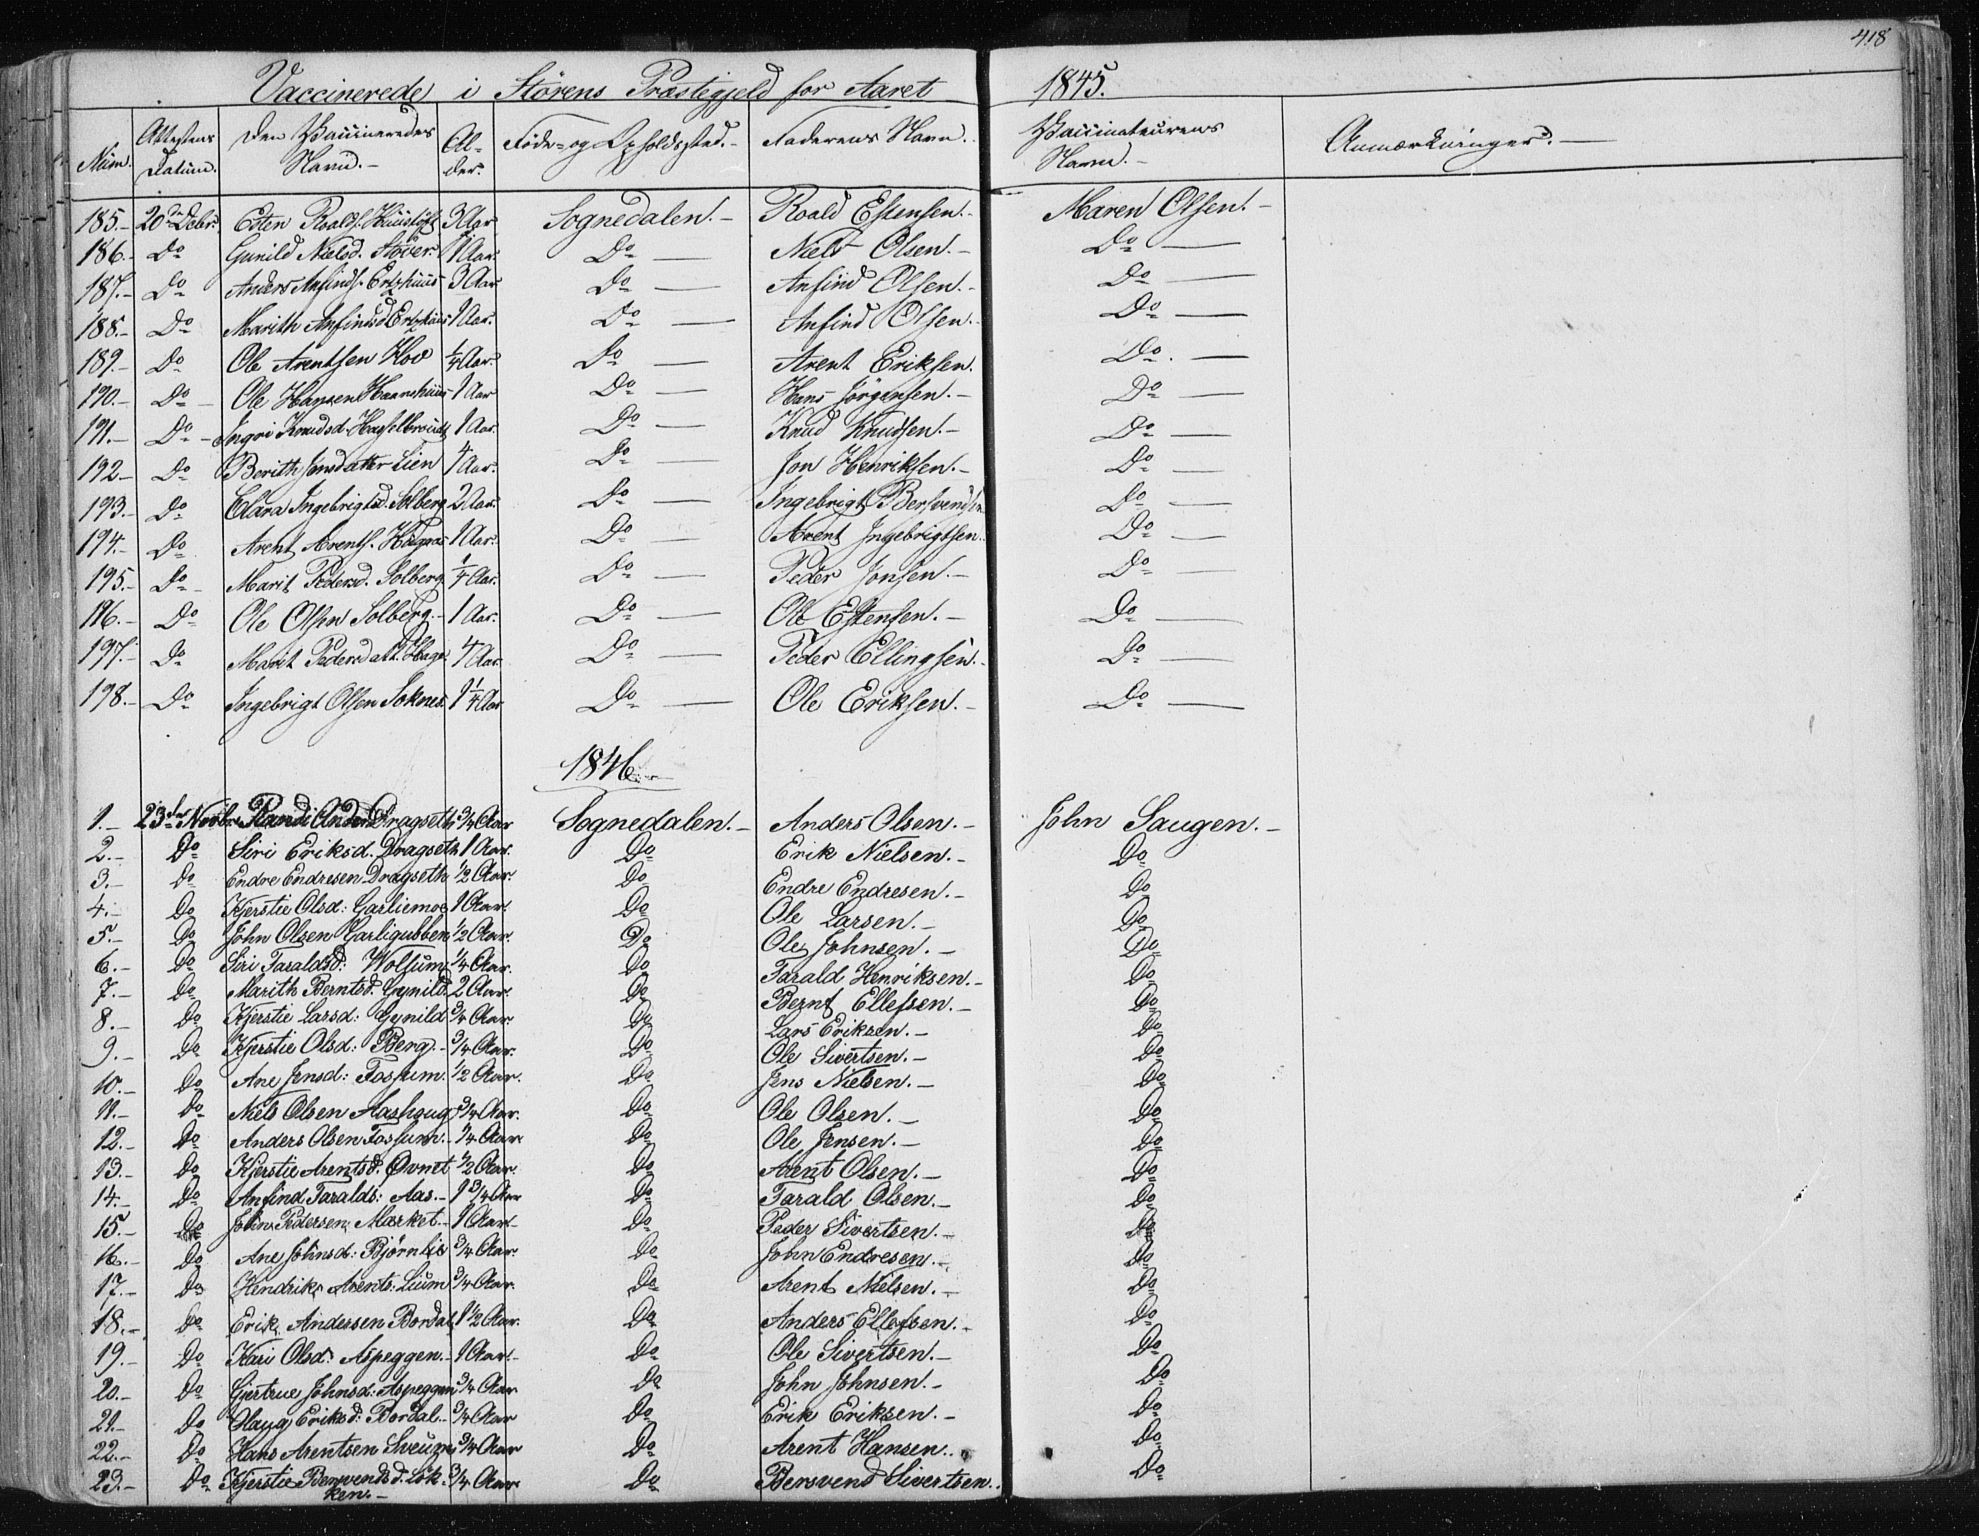 418
Vaccinerede i Störens Præstegjeld for Aaret 1845.
Num. Attestens Datum. Den Vaccineredes Navn.- Al-der. Föde- og Opholdssted.- Faderens Navn. Vaccinateurens Navn.- Anmærkninger.-
185.- 20de Debr. Esten Roalds. 3 Aar Sognedalen.- Roald Estensen.- Maren Olsen.-
186.- Do Gunild Nielsd. Stöver. 1 Aar. Do - Niels Olsen.- Do -
187.- Do Anders Anfinds. Ertzhuus 3 Aar Do - Anfind Olsen.- Do -
188.- Do Marith Anfindsd Ertzhuus 1 Aar. Do - Anfind Olsen.- Do -
189.- Do Ole Arentsen Hov 1/4 Aar. Do - Arent Eriksen. Do. -
190.- Do - Ole Hansen Haanshuus 1 Aar Do - Hans Jörgensen.- Do -
191.- Do - Ingri Knudsd. Hasselbroudt 1 Aar. Do - Knud Knudsen.- Do -
192- Do Berith Jonsdatter Lien 4 Aar. Do - Jon Henriksen.- Do -
193.- Do Clara Ingebrigtsd. Solberg 2 Aar. Do - Ingebrigt Bersvendsen Do -
194.- Do Arent Arents. 1 Aar. Do - Arent Ingebrigtsen. Do -
195.- Do - Marit Pedersd. Solberg. 1/4 Aar. Do - Peder Jonsen.- Do -
196.- Do Ole Olsen Solberg.- 1 Aar. Do - Ole Estensen.- Do -
197.- Do Marit Pedersdatt. Hage 4 Aar Do - Peder Ellingsen.- Do -
198.- Do Ingebrigt Olsen Soknes. 1 1/4 Aar Do - Ole Eriksen.- Do -
1846.-
1.- 23de Novbr. Randi Andersd Dragseth 3/4 Aar Sognedalen.- Anders Olsen.- John Saugen.-
2.- Do Siri Eriksd. Dragseth 1 Aar. Do Erik Nielsen.- Do
3.- Do Endre Endresen Dragseth 1/2 Aar. Do Endre Endresen.- Do
4.- Do Kjerstie Olsd: Garliemoe 1 Aar. Do Ole Larsen.- Do
5.- Do John Olsen Garligubben 1/2 Aar. Do Ole Johnsen.- Do
6.- Do Siri Taraldsd: Wolsum 1/4 Aar. Do Tarald Henriksen.- Do
7.- Do Marith Berntsd. Gynild 2 Aar. Do Bernt Ellefsen.- Do
8.- Do Kjerstie Larsd: Gynild 3/4 Aar. Do Lars Eriksen.- Do
9.- Do Kjerstie Olsd: Berg.- 3/4 Aar. Do Ole Sivertsen.- Do
10.- Do Ane Jensd: Fossum. 1/2 Aar. Do Jens Nielsen.- Do
11.- Do Niels Olsen Aashaug 3/4 Aar. Do Ole Olsen.- Do
12.- Do Anders Olsen Fossum. 1/4 Aar. Do Ole Jensen.- Do
13.- Do Kjerstie Arentsd: Øvnet 1/2 Aar. Do Arent Olsen.- Do
14.- Do Anfind Taralds: Aas.- 1 3/4 Aar Do Tarald Olsen.- Do
15.- Do John Pedersen Market.- 1 Aar.- Do Peder Sivertsen.- Do
16.- Do Ane Johnsd: Bjørnlie 3/4 Aar. Do John Endresen.- Do
17.- Do Hendrik Arents: Lium 3/4 Aar. Do Arent Nielsen.- Do
18.- Do Erik Andersen Bordal 1 1/2 Aar. Do Anders Ellefsen.- Do
19.- Do Kari Olsd: Aspeggen.- 1 Aar.- Do Ole Sivertsen.- Do
20.- Do Gjertrue Johnsd: Aspeggen 3/4 Aar. Do John Johnsen.- Do
21.- Do Haug Eriksd: Bordal.- 3/4 Aar Do Erik Eriksen.- Do
22.- Do Hans Arentsen 3/4 Aar Do Arent Hansen.. Do
23.- Do Kjerstie Bersvendsd. Løk-ken.- 3/4 Aar Do Bersvend Sivertsen.. Do